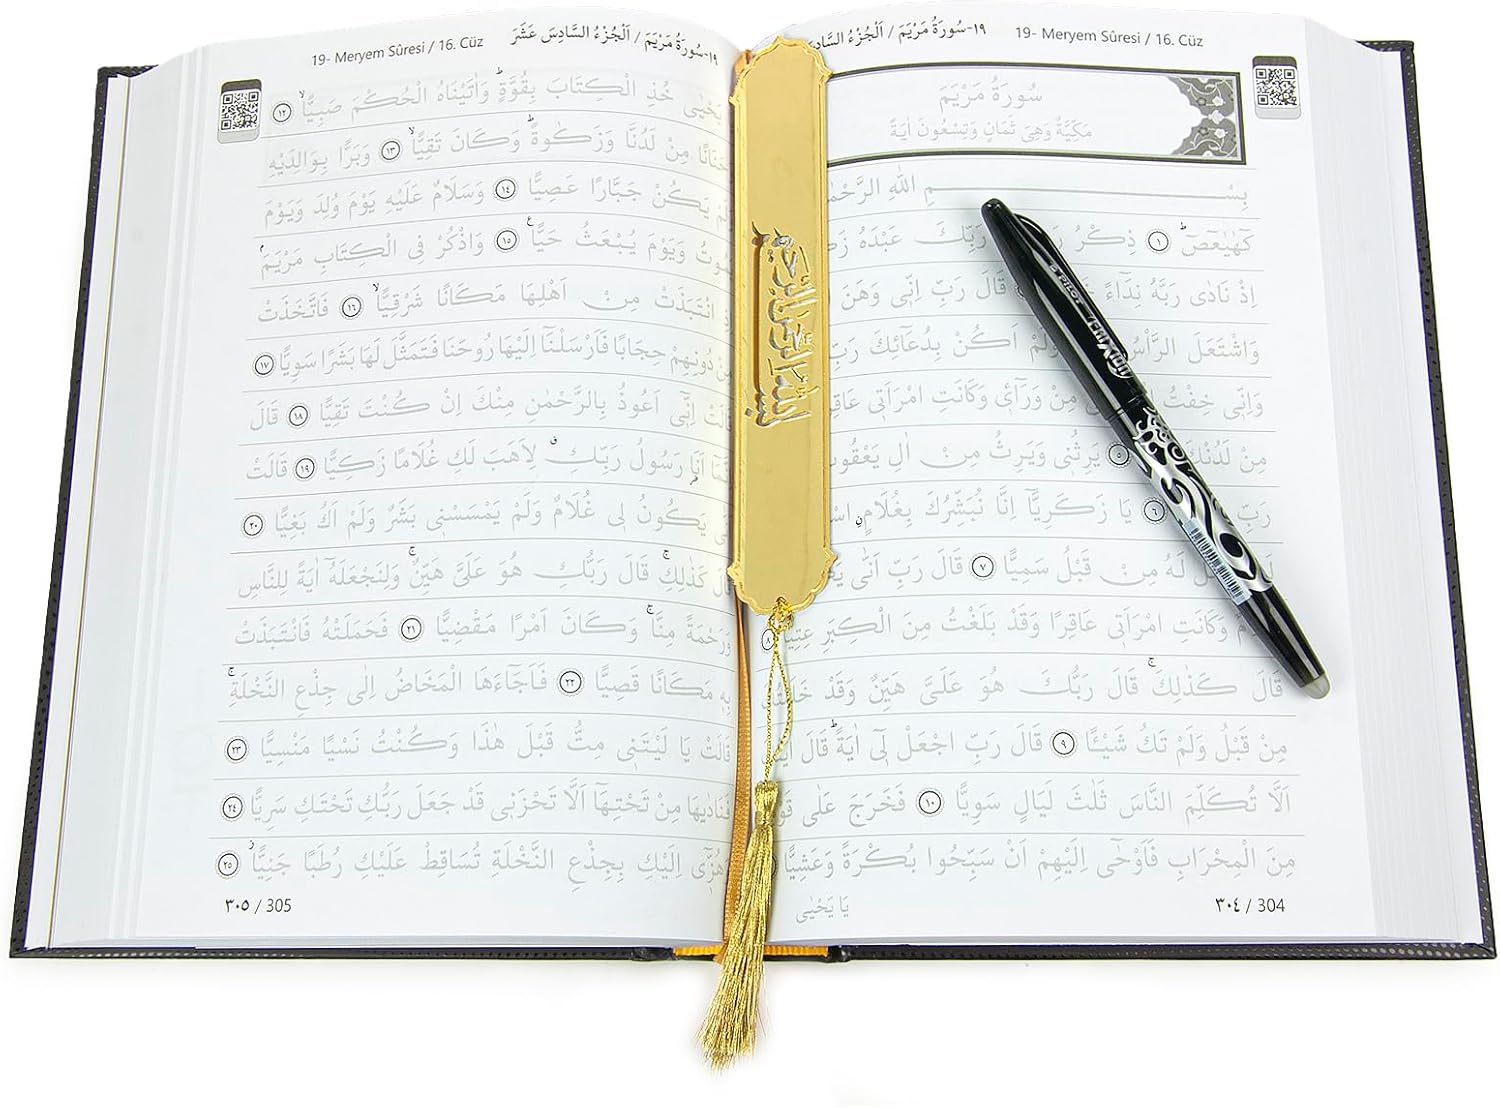 19- Meryem Sûresi / 16. Cüz
١٩-سُورَةُ مَرْيَمَ / اَلْجُزْءُ السَّادِسَ
سُورَةُ مَرْيَمَ
مَكِّيَّةٌ وَهِيَ ثَمَانٍ وَتِسْعُونَ اٰيَةً
بِسْمِ اللهِ الرَّحْمٰنِ
كٓهٰيٰعٓصٓ ۜ ﴿١﴾ ذِكْرُ رَبِّكَ عَبْدَهُ
اِذْ نَادٰى رَبَّهُ نِدَٓاءً قَالَ رَبِّ اِنّ۪ي وَهَنَ
وَاشْتَعَلَ الرَّأْسُ وَلَمْ اَكُنْ بِدُعَٓائِكَ رَبِّ
وَاِنّ۪ي خِفْتُ مِنْ وَرَٓاء۪ي وَكَانَتِ امْرَاَت۪ي
مِنْ لَدُنْكَ ﴿٥﴾ يَرِثُن۪ي وَيَرِثُ مِنْ اٰلِ يَعْقُوبَ
رَبِّ ﴿٦﴾ يَا زَكَرِيَّٓا اِنَّا نُبَشِّرُكَ بِغُلَامٍ
لَهُ مِنْ قَبْلُ سَمِيًّا ﴿٧﴾ قَالَ رَبِّ اَنّٰى
وَكَانَتِ امْرَاَت۪ي عَاقِرًا وَقَدْ بَلَغْتُ مِنَ الْكِبَرِ عِتِيًّا ﴿٨﴾
قَالَ كَذٰلِكَۚ قَالَ رَبُّكَ هُوَ عَلَيَّ هَيِّنٌ وَقَدْ
مِنْ قَبْلُ وَلَمْ تَكُ شَيْـًٔا ﴿٩﴾ قَالَ رَبِّ اجْعَلْ ل۪ٓي اٰيَةًۜ قَالَ
اَلَّا تُكَلِّمَ النَّاسَ ثَلٰثَ لَيَالٍ سَوِيًّا ﴿١٠﴾ فَخَرَجَ عَلٰى
مِنَ الْمِحْرَابِ فَاَوْحٰٓى اِلَيْهِمْ اَنْ سَبِّحُوا بُكْرَةً وَعَشِيًّا
٣٠٤ / 304
يَا يَحْيٰى
بسم الله الرحمن الرحيم
PILOT
FriXion
19- Meryem Sûresi / 16. Cüz
١٩-سُورَةُ مَرْيَمَ / اَلْجُزْءُ السَّادِسَ عَشَرَ
يَحْيٰى خُذِ الْكِتَابَ بِقُوَّةٍۜ وَاٰتَيْنَاهُ الْحُكْمَ صَبِيًّاۙ ﴿١٢﴾
وَحَنَانًا مِنْ لَدُنَّا وَزَكٰوةًۜ وَكَانَ تَقِيًّاۙ ﴿١٣﴾ وَبَرًّا بِوَالِدَيْهِ
وَلَمْ يَكُنْ جَبَّارًا عَصِيًّا ﴿١٤﴾ وَسَلَامٌ عَلَيْهِ يَوْمَ وُلِدَ وَيَوْمَ
يَمُوتُ وَيَوْمَ يُبْعَثُ حَيًّا۟ ﴿١٥﴾ وَاذْكُرْ فِي الْكِتَابِ مَرْيَمَۢ
اِذِ انْتَبَذَتْ مِنْ اَهْلِهَا مَكَانًا شَرْقِيًّاۙ ﴿١٦﴾ فَاتَّخَذَتْ
مِنْ دُونِهِمْ حِجَابًا فَاَرْسَلْنَٓا اِلَيْهَا رُوحَنَا فَتَمَثَّلَ لَهَا بَشَرًا سَوِيًّا ﴿١٧﴾
قَالَتْ اِنّ۪ٓي اَعُوذُ بِالرَّحْمٰنِ مِنْكَ اِنْ كُنْتَ تَقِيًّا ﴿١٨﴾ قَالَ
اِنَّمَٓا اَنَا۬ رَسُولُ رَبِّكِۗ لِاَهَبَ لَكِ غُلَامًا زَكِيًّا ﴿١٩﴾ قَالَتْ
يَكُونُ ل۪ي غُلَامٌ وَلَمْ يَمْسَسْن۪ي بَشَرٌ وَلَمْ اَكُ بَغِيًّا ﴿٢٠﴾
قَالَ كَذٰلِكِۚ قَالَ رَبُّكِ هُوَ عَلَيَّ هَيِّنٌۚ وَلِنَجْعَلَهُٓ اٰيَةً لِلنَّاسِ
وَرَحْمَةً مِنَّاۚ وَكَانَ اَمْرًا مَقْضِيًّا ﴿٢١﴾ فَحَمَلَتْهُ فَانْتَبَذَتْ
بِه۪ مَكَانًا قَصِيًّا ﴿٢٢﴾ فَاَجَٓاءَهَا الْمَخَاضُ اِلٰى جِذْعِ النَّخْلَةِۚ
قَالَتْ يَا لَيْتَن۪ي مِتُّ قَبْلَ هٰذَا وَكُنْتُ نَسْيًا مَنْسِيًّا ﴿٢٣﴾
فَنَادٰيهَا مِنْ تَحْتِهَٓا اَلَّا تَحْزَن۪ي قَدْ جَعَلَ رَبُّكِ تَحْتَكِ سَرِيًّا ﴿٢٤﴾
وَهُزّ۪ٓي اِلَيْكِ بِجِذْعِ النَّخْلَةِ تُسَاقِطْ عَلَيْكِ رُطَبًا جَنِيًّاۘ ﴿٢٥﴾
٣٠٥ / 305